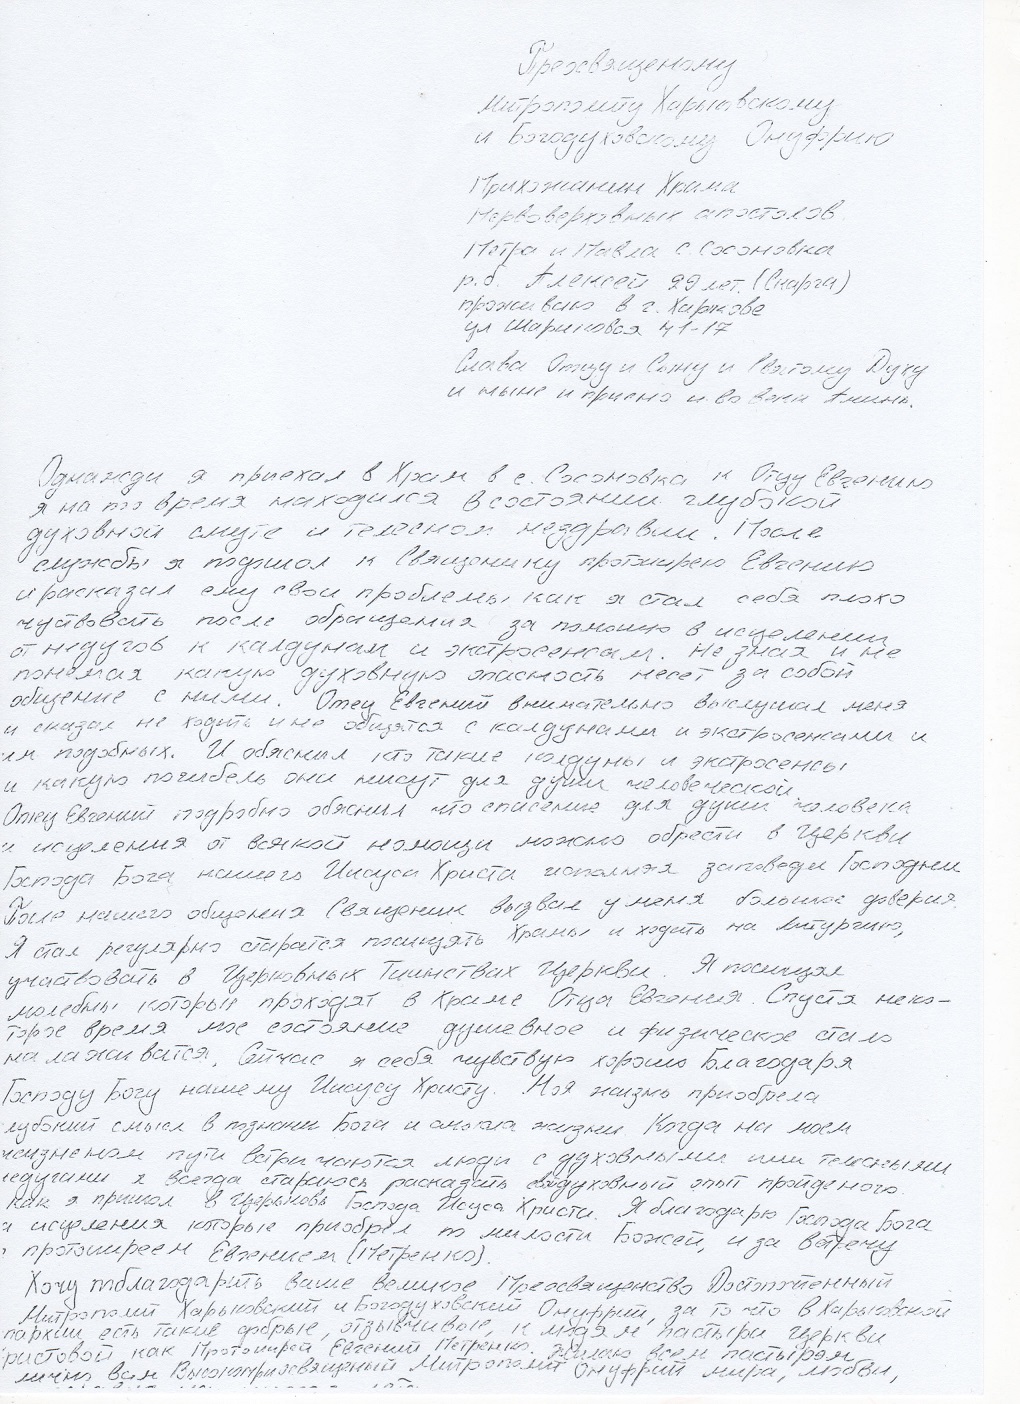 Преосвященому
Митрополиту Харьковскому
и Богодуховскому Онуфрию
Прихожанин Храма
Первоверховных апостолов
Петра и Павла с. Сосоновка
р.б. Алексей 29 лет. (Снарга)
проживаю в г. Харкове
ул Шариковая 41-17
Слава Отцу и Сыну и Святому Духу
и ныне и присно и во веки Аминь.
Однажди я приехал в Храм в с. Сосоновка к Отцу Евгению
я на то время находился в состоянии глубокой
духовной смуте и телесном нездравии. После
службы я подшол к Священику протоирею Евгению
и расказал ему свои проблемы, как я стал себя плохо
чуствовать после обращения за помощю в исцелении
от недугов к калдунам и экстросенсам. Не зная и не
понемая какую духовную опасность несет за собой
общение с ними. Отец Евгений внимательно выслушал меня
и сказал не ходить и не общятся с калдунами и экстросенсами и
им подобных. И обяснил кто такие колдуны и экстросенсы
и какую погибель они нисут для души человеческой.
Отец Евгений подробно обяснил что спасение для души человека
и исцеления от всякой немощи можно обрести в Церкви
Господа Бога нашего Иисуса Христа исполняя заповеди Господни
После нашего общения Священик вызвал у меня большое доверия.
Я стал регулярно старатся посищять Храмы и ходить на литургию,
участвовать в Церковных Таинствах Церкви. Я посищал
молебны которые проходят в Храме Отца Евгения. Спустя неко-
торое время мое состояние душевное и физическое стало
налаживатся. Сейчас я себя чувствую хорошо Благодаря
Господу Богу нашему Иисусу Христу. Моя жизнь приобрела
лубокий смысл в познани Бога и смысла жизни Когда на моем
жизненом пути встричаются люди с духовными или телесными
недугами я всегда стараюсь расказать духовный опыт пройденого
как я пришол в Церьковь Господа Исуса Христа. Я благодарю Господа Бога
а исцеления которые приобрел по милости Божей, и за встречу
протоиреем Евгением (Петренко).
Хочу поблагодарить ваше великое Преосвященство Достопочтенный
Митрополит Харьковский и Богодуховский Онуфрий, за то что в Харьковской
пархии есть такие добрые, отзывчивые, к людям пастыри Церкви
ристовой как Протоирей Евгений Петренко. Желаю всем пастырям
лично вам Высокопреосвященый Митрополит Онуфрий мира, любви,